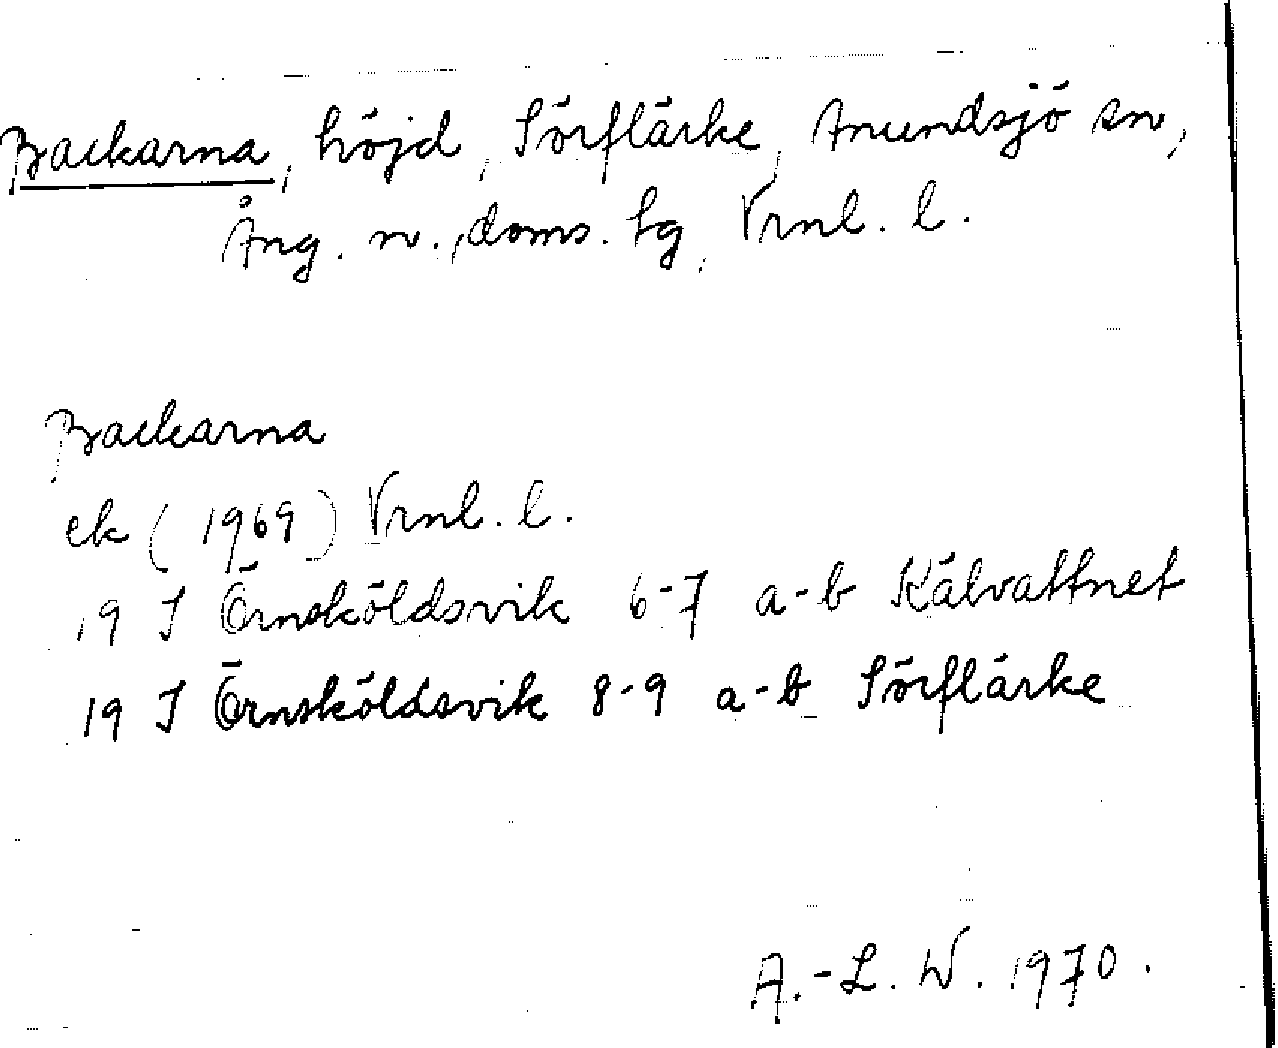 Backarna, höjd, Sörflärke, Anundsjö sn,
Ång. n., doms. tg, Vrnl. l.
Backarna
ek (1969) Vrnl. l.
19 J Örnsköldsvik 6-7 a-b Kälvattnet
19 J Örnsköldsvik 8-9 a-b Sörflärke
A.-L. W. 1970.